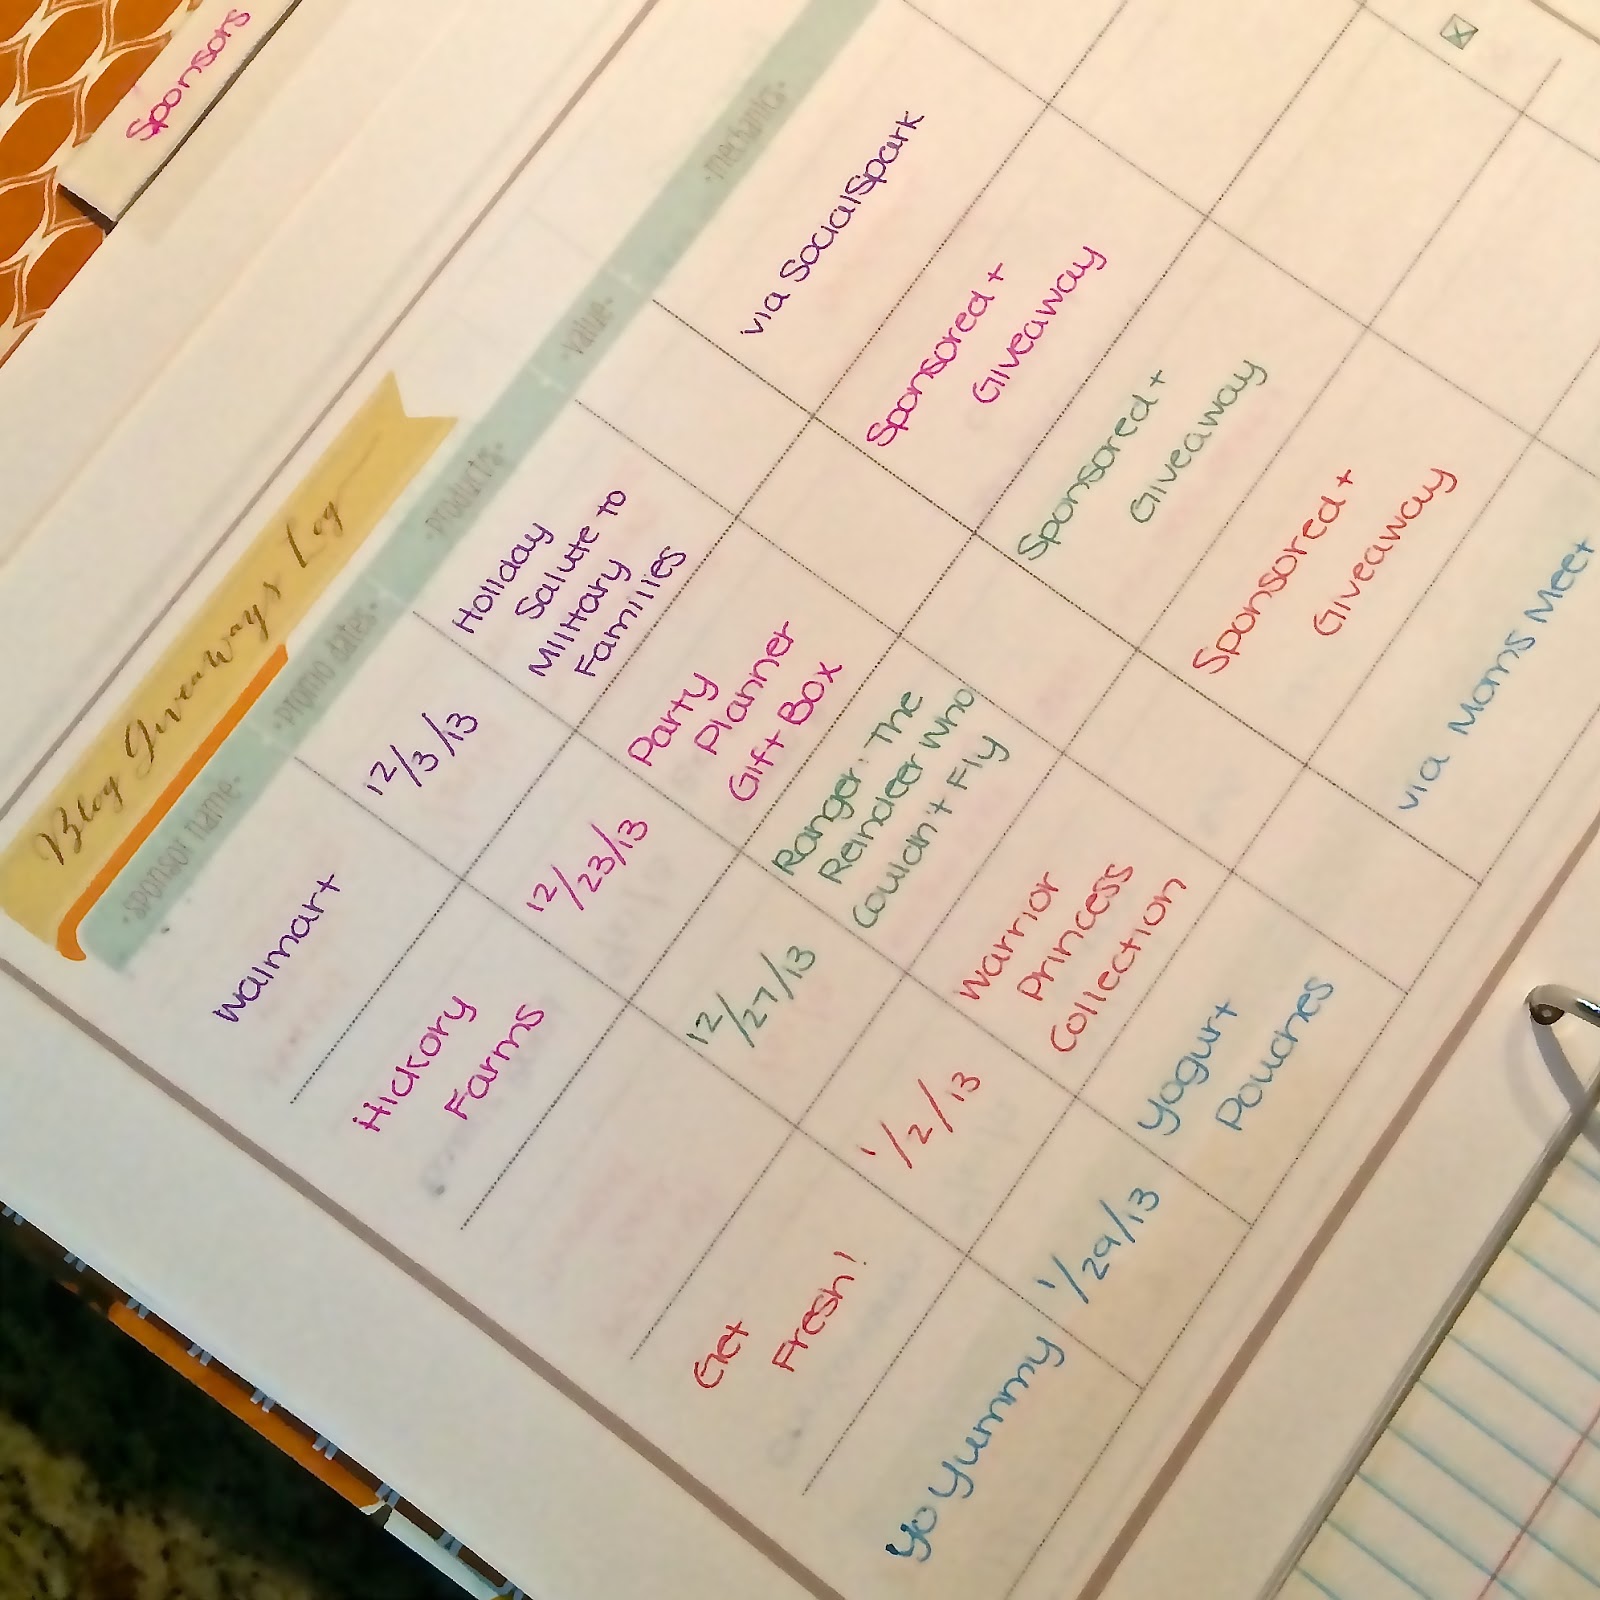 Sponsors
Blog Giveaways Log
·sponsor name· ·promo dates· ·products· ·value· ·mechanics·
Walmart 12/3/13 Holiday via SocialSpark
Salute to
Military
Families
Hickory 12/23/13 Party Sponsored +
Farms Planner Giveaway
Gift Box
12/27/13 Ranger: The Sponsored +
Reindeer Who Giveaway
Couldn't Fly
Get 1/2/13 Warrior Sponsored +
Fresh! Princess Giveaway
Collection
Yo Yummy 1/29/13 Yogurt via Moms Meet
Pouches